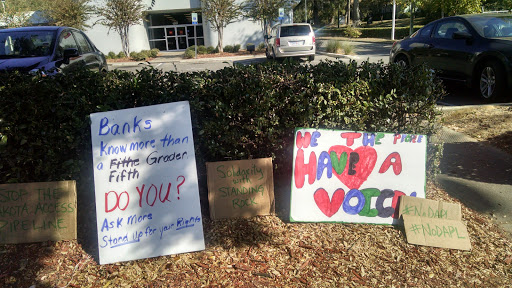 STOP THE
DAKOTA ACCESS
PIPELINE
Banks
Know more than
a Fifthe Grader
Fifth
DO YOU?
Ask More
Stand Up for your Rights
Solidarity
with
STANDING
ROCK
WE THE PEOPLE
HAVE A
VOICE
#NODAPL
#NoDAPL